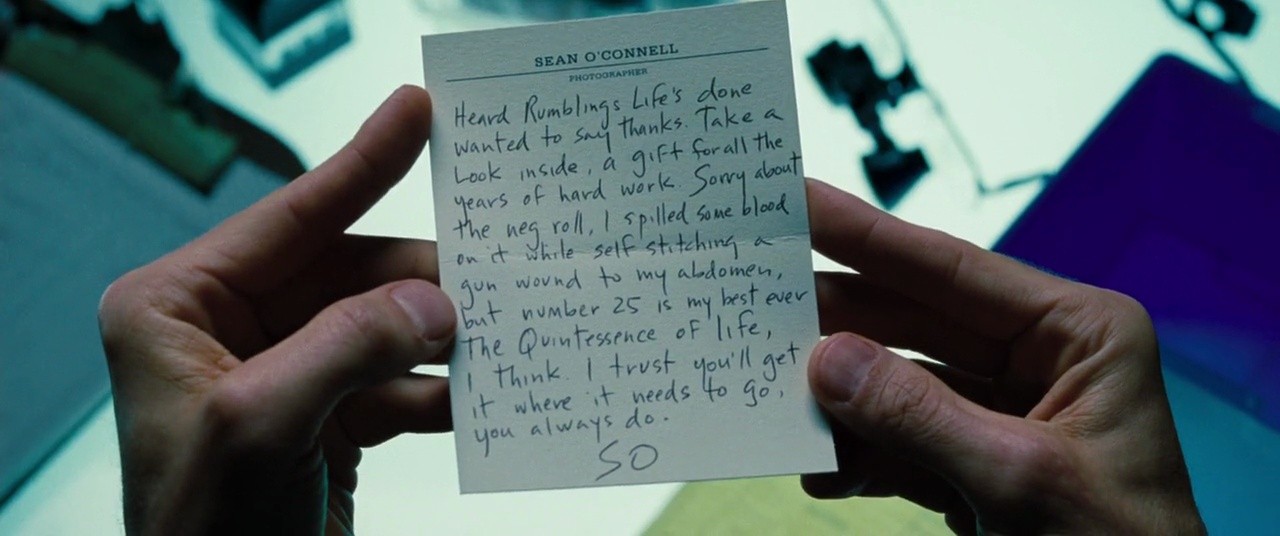 SEAN O'CONNELL
PHOTOGRAPHER
Heard Rumblings Life's done
wanted to say thanks. Take a
Look inside, a gift for all the
years of hard work. Sorry about
the neg roll, I spilled some blood
on it while self stitching a
gun wound to my abdomen,
but number 25 is my best ever
The Quintessence of life,
I think. I trust you'll get
it where it needs to go,
you always do.
SO